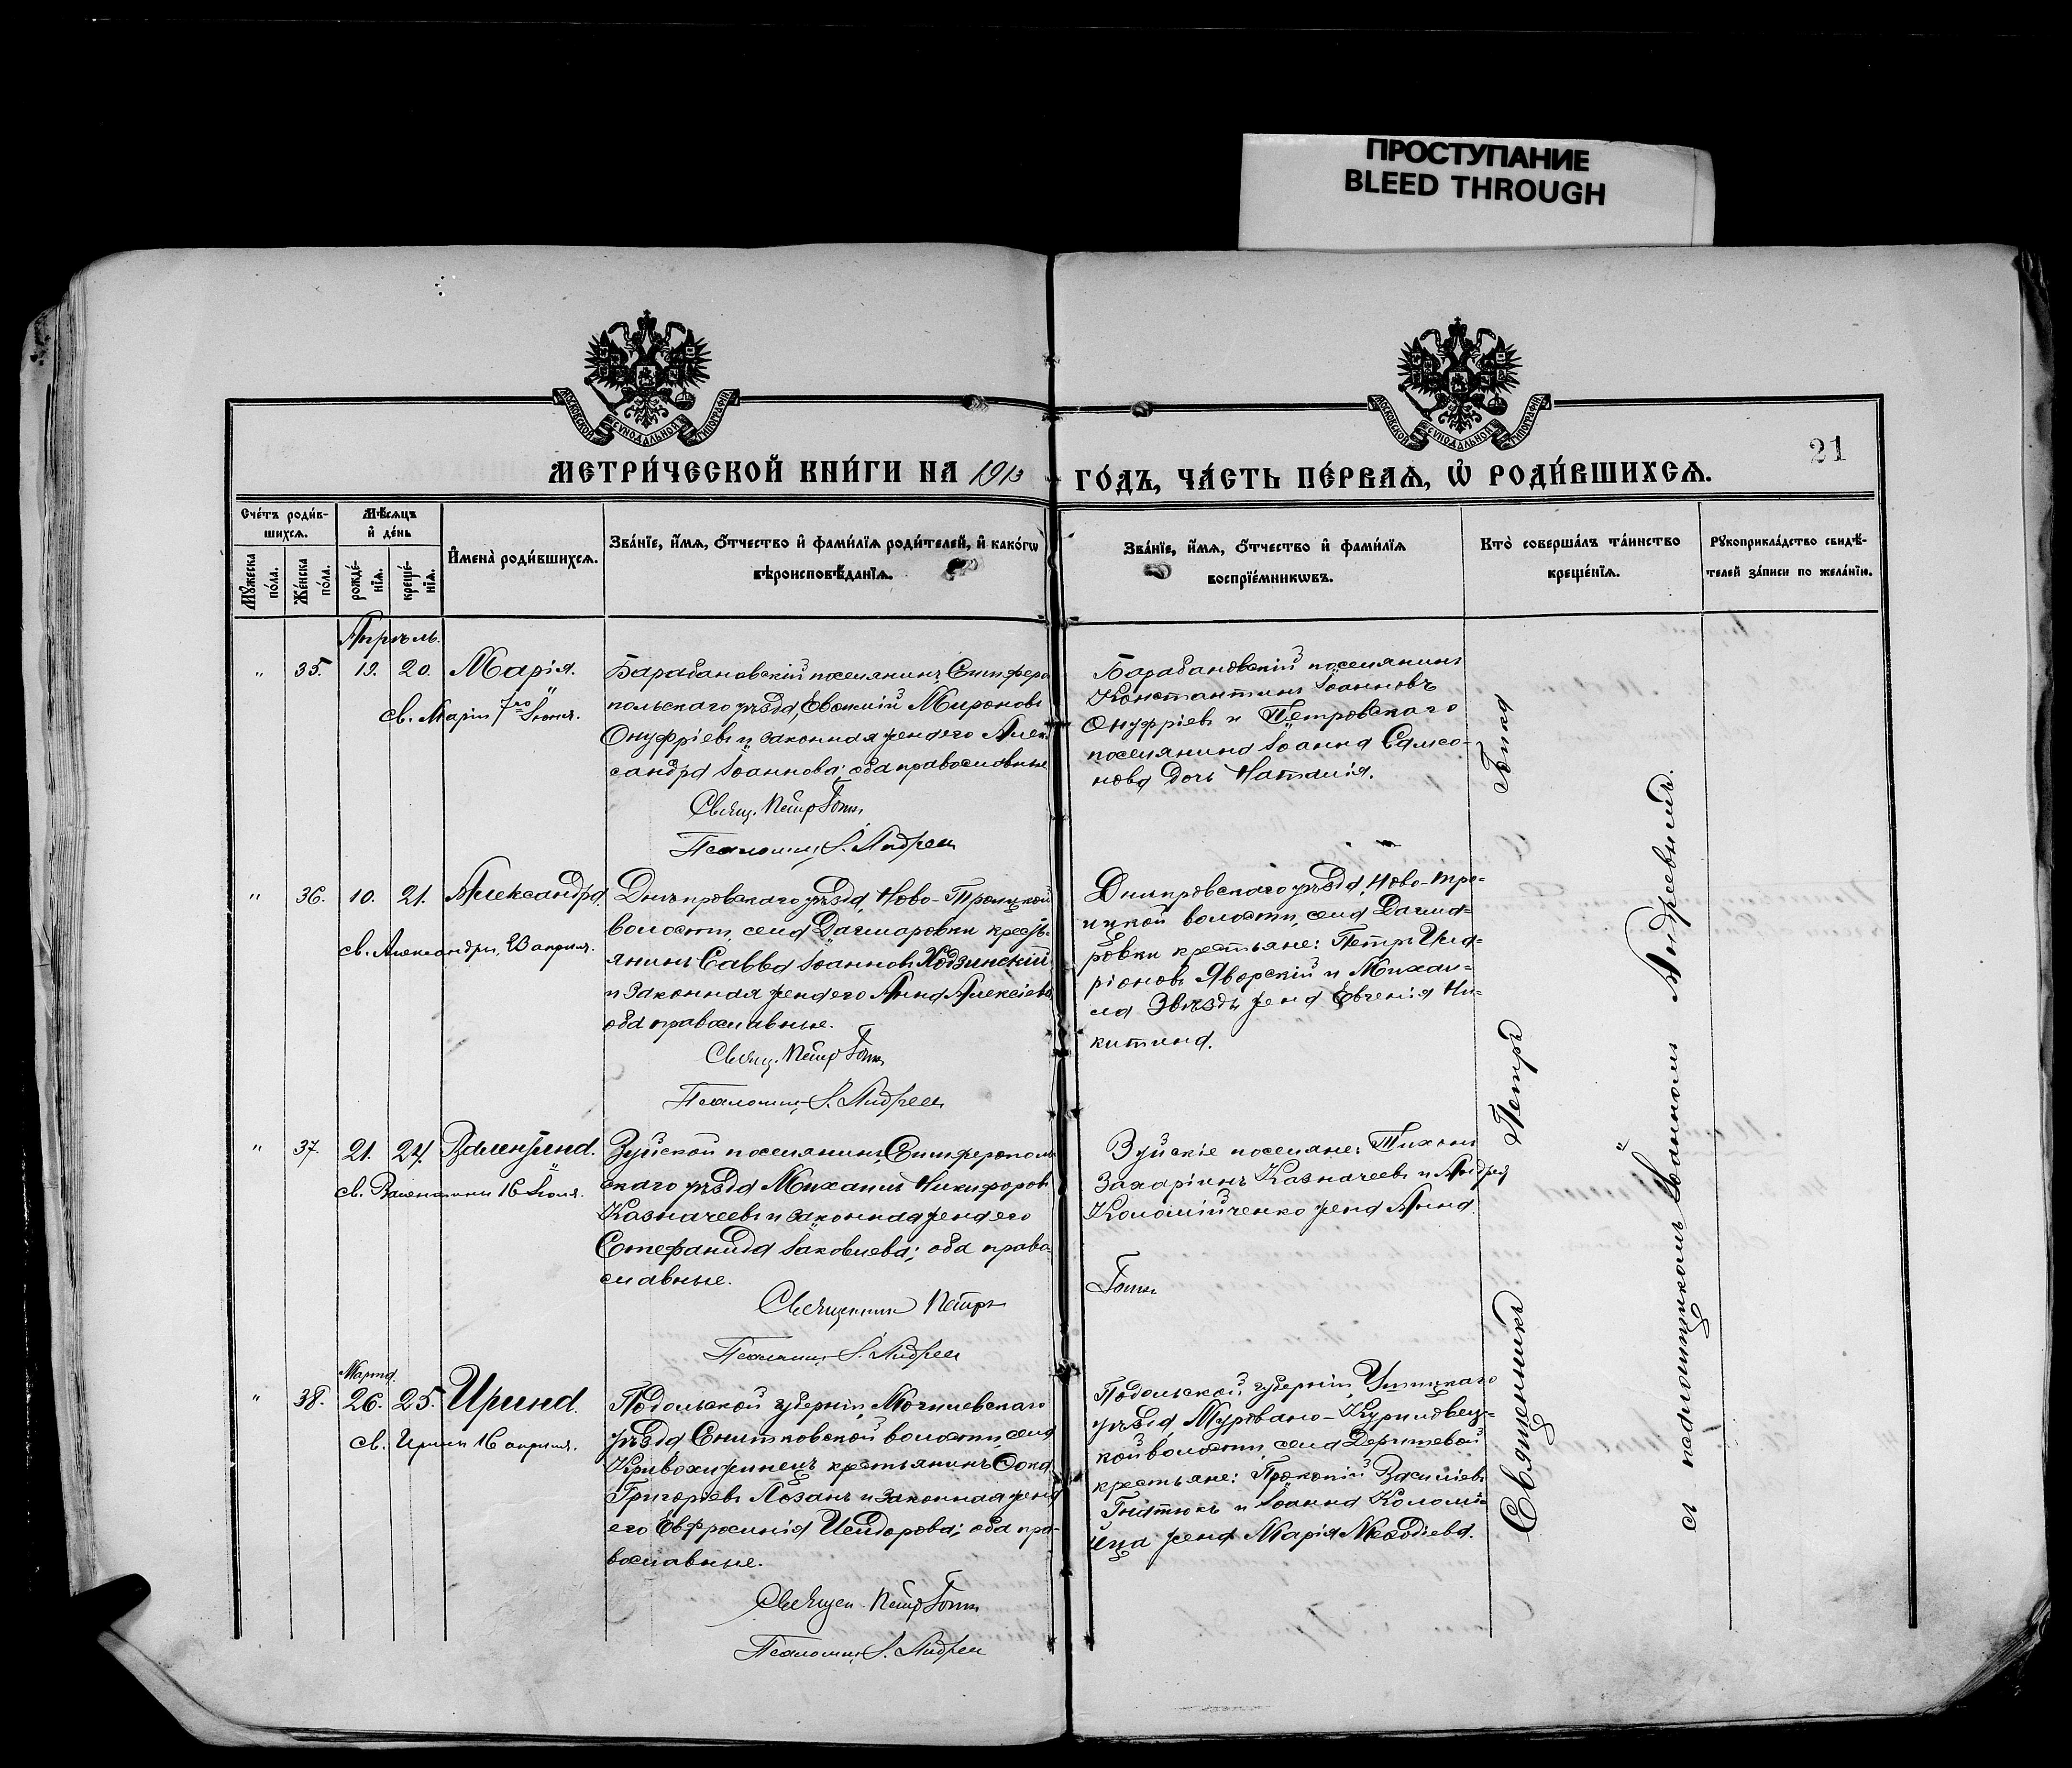 ПРОСТУПАНИЕ
BLEED THROUGH
МОСКОВСКОЙ СѴНОДАЛЬНОЙ ТИПОГРАФІИ
МОСКОВСКОЙ СѴНОДАЛЬНОЙ ТИПОГРАФІИ
21
МЕТРИ́ЧЕСКОЙ КНИ́ГИ НА 1913 ГО́ДЪ, ЧА́СТЬ ПЕ́РВАѦ, Ѡ҆ РОДИ́ВШИХСѦ.
Сче́тъ роди́в-
шихсѧ.
Мѣ́сѧцъ
и҆ де́нь
Мꙋ́жеска по́ла.
Же́нска по́ла.
рожде́-
нїѧ.
креще́-
нїѧ.
И҆мена̀ роди́вшихсѧ.
Зва́нїе, и҆́мѧ, ѻ҆́тчество и҆ фами́лїѧ роди́телей, и҆ како́гѡ
вѣроисповѣ́данїѧ.
Зва́нїе, и҆́мѧ, ѻ҆́тчество и҆ фами́лїѧ
воспрїе́мникѡвъ.
Кто̀ соверша́лъ та́инство
креще́нїѧ.
Рꙋкоприкла́дство свидѣ́-
телей за́писи по жела́нїю.
Апрѣль.
" 35. 19. 20. Марія.
св. Маріи 7го Іюня.
Барабановскій поселянинъ, Симферо
польскаго уѣзда, Евѳимій Мироновъ
Онуфріевъ и законная жена его Алек
сандра Іоаннова; оба православные
Свящ. Петръ Гопка
Псаломщ. І. Андреев
Барабановскій поселянинъ
Константинъ Іоанновъ
Онуфріевъ и Петровскаго
поселянина Іоанна Самсо-
нова дочь Наталія.
" 36. 10. 21. Александра
св. Александры, 23 апреля.
Днѣпровскаго уѣзда, Ново-Троицкой
волости, села Дагмаровки кресть-
янинъ Савва Іоанновъ Ходзинскій
и законная жена его Анна Алексіева
оба православные.
Свящ. Петръ Гопка
Псаломщ. І. Андреев
Днѣпровскаго уѣзда, Ново-Тро-
ицкой волости, села Дагма-
ровки крестьяне: Петръ Ила-
ріоновъ Яворскій и Михаи-
ла Звѣзды жена Евгенія Ни-
китина.
" 37. 21. 24. Валентина.
св. Валентины 16 Іюля.
Зуйской поселянинъ, Симферополь
скаго уѣзда Михаилъ Никифоровъ
Казначеевъ и законная жена его
Стефанида Іаковлева; оба право
славные.
Священникъ Петръ
Гопка
Псаломщ. І. Андреев
Зуйскіе поселяне: Тихонъ
Захаріинъ Казначеевъ и Андрея
Коломійченко жена Анна.
Марта.
" 38. 26. 25. Ирина.
св. Ирины 16 апреля.
Подольской губерніи, Могилевскаго
уѣзда Снитковской волости, села
Кривохижинецъ крестьянинъ Ѳома
Григорьевъ Лозанъ и законная жена
его Евфросинія Исидорова; оба пра-
вославные.
Священ. Петръ Гопка
Псаломщ. І. Андреев
Подольской губерніи, Ушицкаго
уѣзда, Муровано-Куриловец-
кой волости, села Дерешевой
крестьяне: Прокопій Василіевъ
Гнатюкъ и Іоанна Коломі-
йца жена Марія Меѳодіева.
Священникъ Петръ Гопка
съ псаломщикомъ Іоанномъ Андреевымъ.